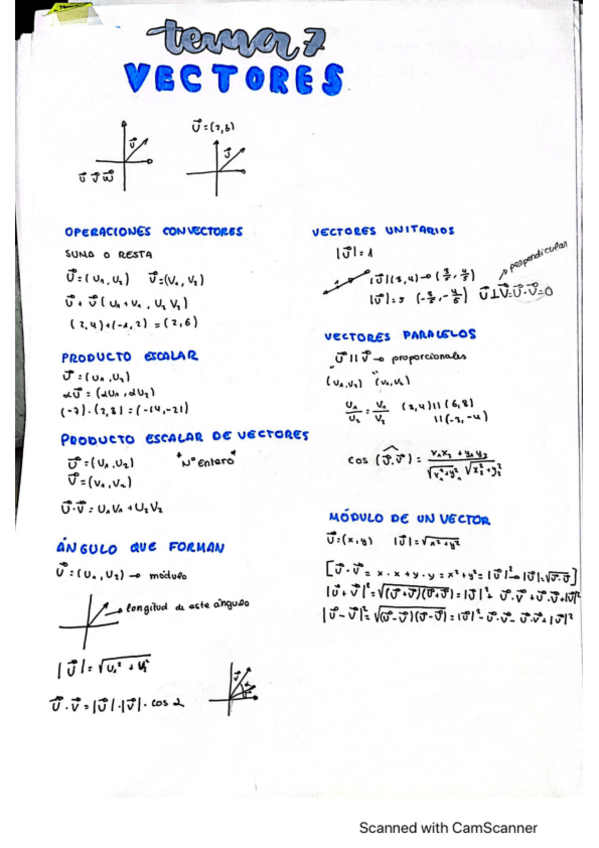 tema 7
VECTORES
U⃗=(2,3)
U⃗
U⃗
U⃗ V⃗ W⃗
OPERACIONES CON VECTORES
SUMA O RESTA
U⃗=(U₁,U₂) V⃗=(V₁,V₂)
U⃗+V⃗(U₁+V₁,U₂V₂)
(2,4)+(-1,2)=(2,6)
PRODUCTO ESCALAR
U⃗=(U₁,U₂)
αU⃗=(αU₁,αU₂)
(-7)·(2,3)=(-14,-21)
PRODUCTO ESCALAR DE VECTORES
U⃗=(U₁,U₂) *Nº Entero*
V⃗=(V₁,V₂)
U⃗·V⃗=U₁V₁+U₂V₂
ÁNGULO QUE FORMAN
U⃗=(U₁,U₂)→ módulo
longitud de este ángulo
|U⃗|=√U₁²+U₂²
U⃗·V⃗=|U⃗|·|V⃗|·cos α
VECTORES UNITARIOS
|U⃗|=1
perpendicular
|U⃗|(3,4)→(3/5,4/5)
|U⃗|=5 (-3/5,-4/5) U⃗⊥V⃗=U⃗·V⃗=0
VECTORES PARALELOS
U⃗||V⃗→ proporcionales
(U₁,U₂) (V₁,V₂)
U₁/U₂=V₁/V₂ (3,4)||(6,8)
||(-3,-4)
cos(U⃗,V⃗)=x₁x₂+y₁y₂/√x₁²+y₁² √x₂²+y₂²
MÓDULO DE UN VECTOR
U⃗=(x,y) |U⃗|=√x²+y²
[U⃗·U⃗=x·x+y·y=x²+y²=|U⃗|²→|U⃗|=√U⃗·U⃗]
|U⃗+V⃗|²=√(U⃗+V⃗)(U⃗+V⃗)=|U⃗|²+U⃗·V⃗+U⃗·V⃗+|V⃗|²
|U⃗-V⃗|²=√(U⃗-V⃗)(U⃗-V⃗)=|U⃗|²-U⃗·V⃗-U⃗·V⃗+|V⃗|²
Scanned with CamScanner